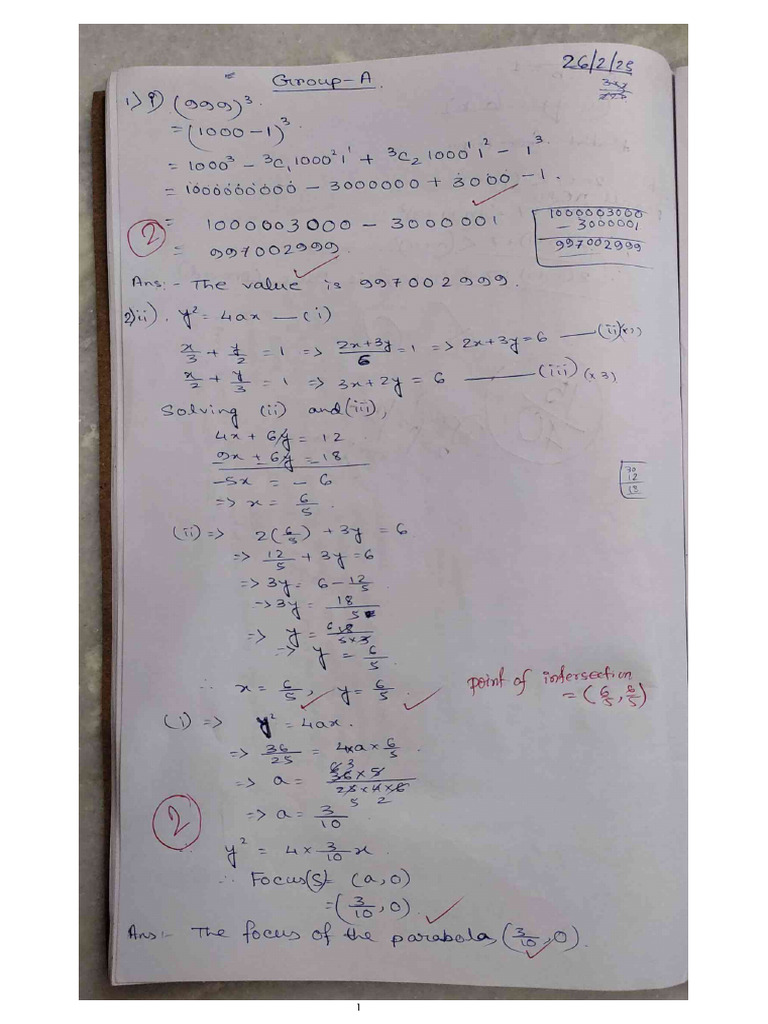 Group-A
26/2/25
1) i) (999)³.
= (1000-1)³
= 1000³ - ³C₁ 1000² 1¹ + ³C₂ 1000¹ 1² - 1³
= 1000000000 - 3000000 + 3000 - 1.
= 1000003000 - 3000001
1000003000
- 3000001
997002999
2
= 997002999.
Ans:- The value is 997002999.
2) ii). y² = 4ax — (i)
x/3 + y/2 = 1 => 2x+3y/6 = 1 => 2x+3y = 6 — (ii)
x/2 + y/3 = 1 => 3x+2y = 6 — (iii) (×3)
Solving (ii) and (iii),
4x + 6y = 12
9x + 6y = 18
- - -
-5x = -6
=> x = 6/5.
70
12
(ii) => 2(6/5) + 3y = 6
=> 12/5 + 3y = 6
=> 3y = 6 - 12/5
=> 3y = 18/5
=> y = 18/5×3
=> y = 6/5.
∴ x = 6/5, y = 6/5.
point of intersection
= (6/5, 6/5)
(i) => y² = 4ax.
=> 36/25 = 4×a×6/5.
=> a = 36×5/25×4×6
=> a = 3/10
2
y² = 4 × 3/10 x
∴ Focus(S) = (a, 0)
= (3/10, 0).
Ans:- The focus of the parabola, (3/10, 0).
1